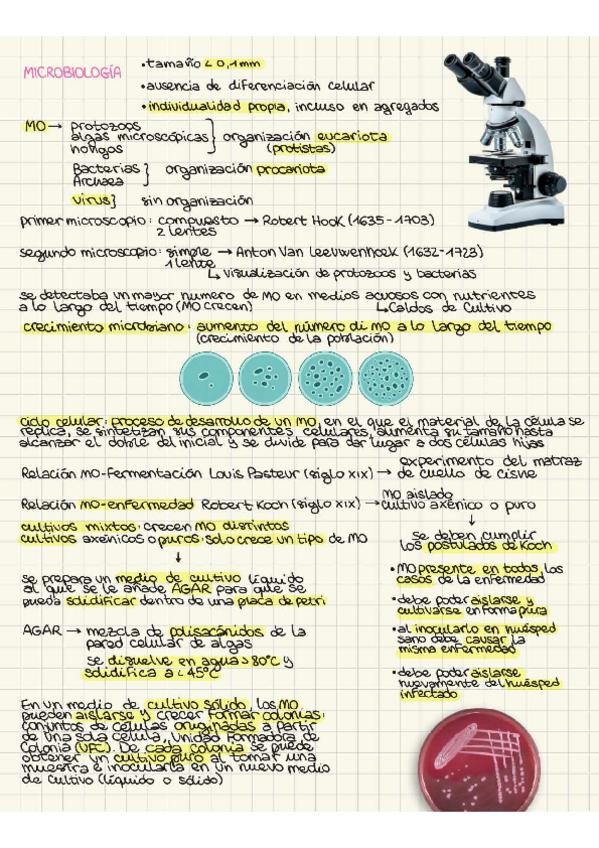 MICROBIOLOGÍA
•tamaño < 0,1mm
•ausencia de diferenciación celular
•individualidad propia, incluso en agregados
MO → protozoos
algas microscópicas } organización eucariota
hongos (protistas)
Bacterias } organización procariota
Archaea
virus } sin organización
primer microscopio: compuesto → Robert Hook (1635-1703)
2 lentes
segundo microscopio: simple → Anton Van Leeuwenhoek (1632-1723)
1 lente
↳ visualización de protozoos y bacterias
se detectaba un mayor numero de MO en medios acuosos con nutrientes
a lo largo del tiempo (MO crecen) ↳ Caldos de Cultivo
crecimiento microbiano: aumento del número di MO a lo largo del tiempo
(crecimiento de la población)
ciclo celular: proceso de desarrollo de un MO, en el que el material de la célula se
replica, se sintetizan sus componentes celulares, aumenta su tamaño hasta
alcanzar el doble del inicial y se divide para dar lugar a dos células hijas
experimento del matraz
Relación MO-Fermentación Louis Pasteur (siglo XIX) → de cuello de cisne
MO aislado
Relación MO-enfermedad Robert Koch (siglo XIX) → cultivo axénico o puro
cultivos mixtos: crecen MO distintos
cultivos axénicos o puros: solo crece un tipo de MO
↓
se prepara un medio de cultivo líquido
al que se le añade AGAR para que se
pueda solidificar dentro de una placa de petri
AGAR → mezcla de polisacáridos de la
pared celular de algas
se disuelve en agua > 80°C y
solidifica a < 45°C
En un medio de cultivo sólido, los MO
pueden aislarse y crecer formar colonias:
conjuntos de células originadas a partir
de una sola célula, unidad formadora de
Colonia (UFC). De cada colonia se puede
obtener un cultivo puro al tomar una
muestra e inocularla en un nuevo medio
de cultivo (líquido o sólido)
↓
se deben cumplir
los postulados de Koch
•MO presente en todos los
casos de la enfermedad
•debe poder aislarse y
cultivarse en forma pura
•al inocularlo en huésped
sano debe causar la
misma enfermedad
•debe poder aislarse
nuevamente del huésped
infectado